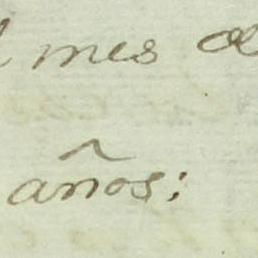 l mes d
años;